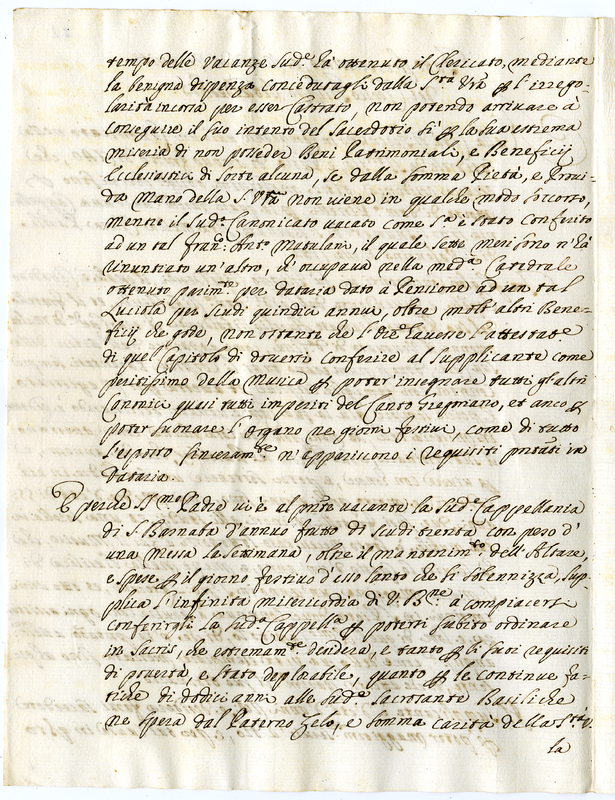 tempo delle Vacanze Sud.e hà ottenuto il Chericato, mediante
la benigna dispenza concedutagli dalla S.tà V.ra p l'irrego-
larità incorsa per esser Castrato, non potendo arrivare à
conseguire il suo intento del Sacerdotio sì p la sua estrema
miseria di non posseder Beni Patrimoniali, e Beneficij
Ecclesiastici di sorte alcuna, se dalla somma Pietà, e Provi-
da Mano della S. V.ra non viene in qualche modo soccorso,
mentre il Sud.o Canonicato vacato come s.a è stato conferito
ad un tal Fran.o Ant.o Mutulani, il quale sette mesi sono n'hà
rinuntiato un'altro, ch'occupava nella med.a Catedrale
ottenuto parim.te per dataria dato à Pensione ad un tal
Luciola per scudi quindici annui, oltre molt'altri Bene-
ficij che gode, non ostante che l'Or.e havesse l'attestat.e
di quel Capitolo di doversi conferire al Supplicante come
peritissimo della Musica p poter'insegnare tutti gl'altri
Canonici quasi tutti imperiti del Canto Gregoriano, et anco p
poter suonare l'Organo ne giorni festivi, come di tutto
l'esposto sinceram.te n'appariscono i requisiti pntati in
Dataria.
E perche SS.mo Padre vi è al pnte vacante la Sud.e Cappellania
di S. Barnaba d'annuo frutto di scudi trenta con peso d'
una Messa la settimana, oltre il mantenim.to dell'Altare,
e spese p il giorno festivo d'esso Santo che si solennizza, sup-
plica l'infinita misericordia di V. B.ne à compiacersi
conferirgli la Sud.a Cappell.a p potersi subito ordinare
in Sacris, che estremam.te desidera, e tanto p li suoi requisiti
di povertà, e stato deplorabile, quanto p le continue fa-
tiche di dodici anni alle Sud.e Sacrosante Basiliche
ne spera dal Paterno Zelo, e somma carità della S.tà V.
la